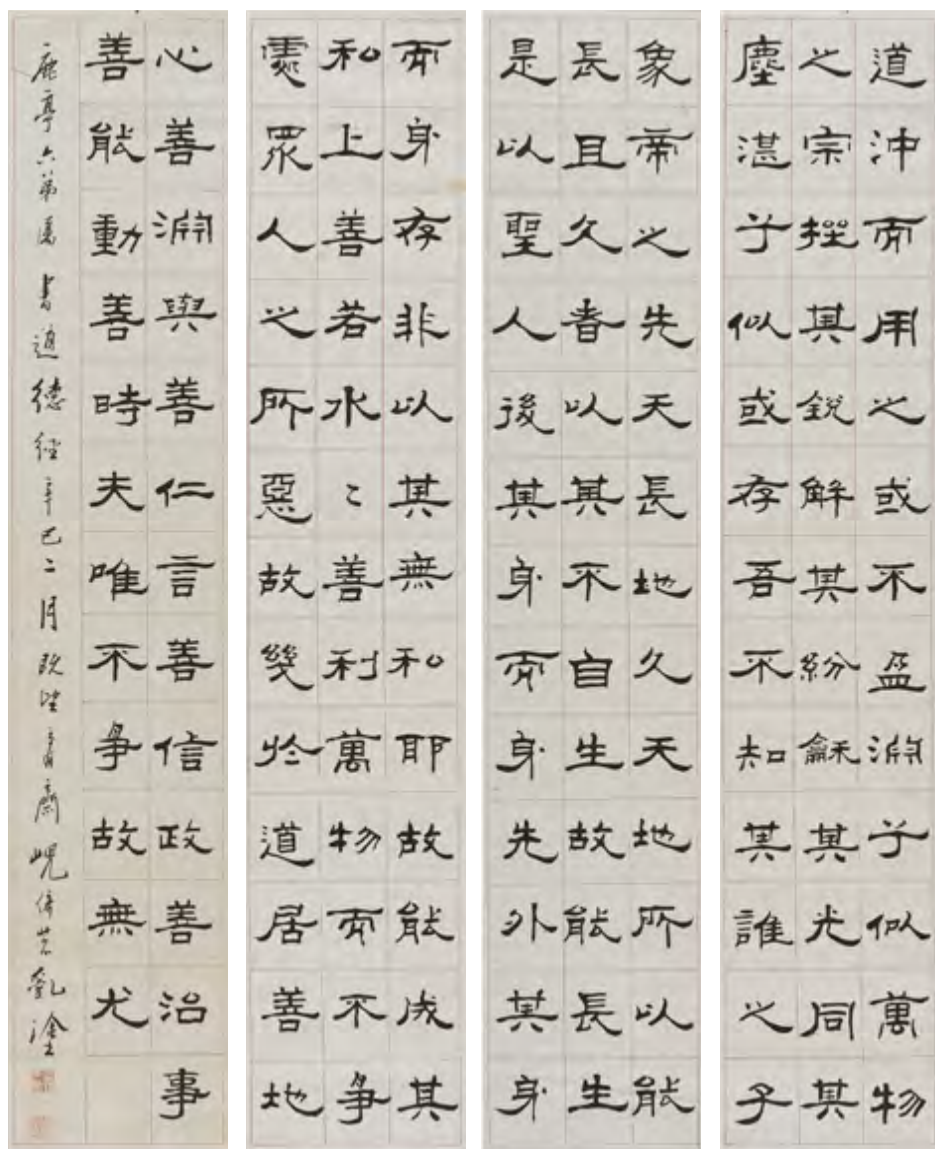 道沖而用之或不盈淵乎似萬物
之宗挫其銳解其紛龢其光同其
塵湛乎似或存吾不知其誰之子
象帝之先天長地久天地所以能
長且久者以其不自生故能長生
是以聖人後其身而身先外其身
而身存非以其無私耶故能成其
私上善若水〻善利萬物而不爭
處眾人之所惡故幾於道居善地
心善淵與善仁言善信政善治事
善能動善時夫唯不爭故無尤
鹿亭六弟屬書道德經辛巳二月既望峴倚裝亂塗